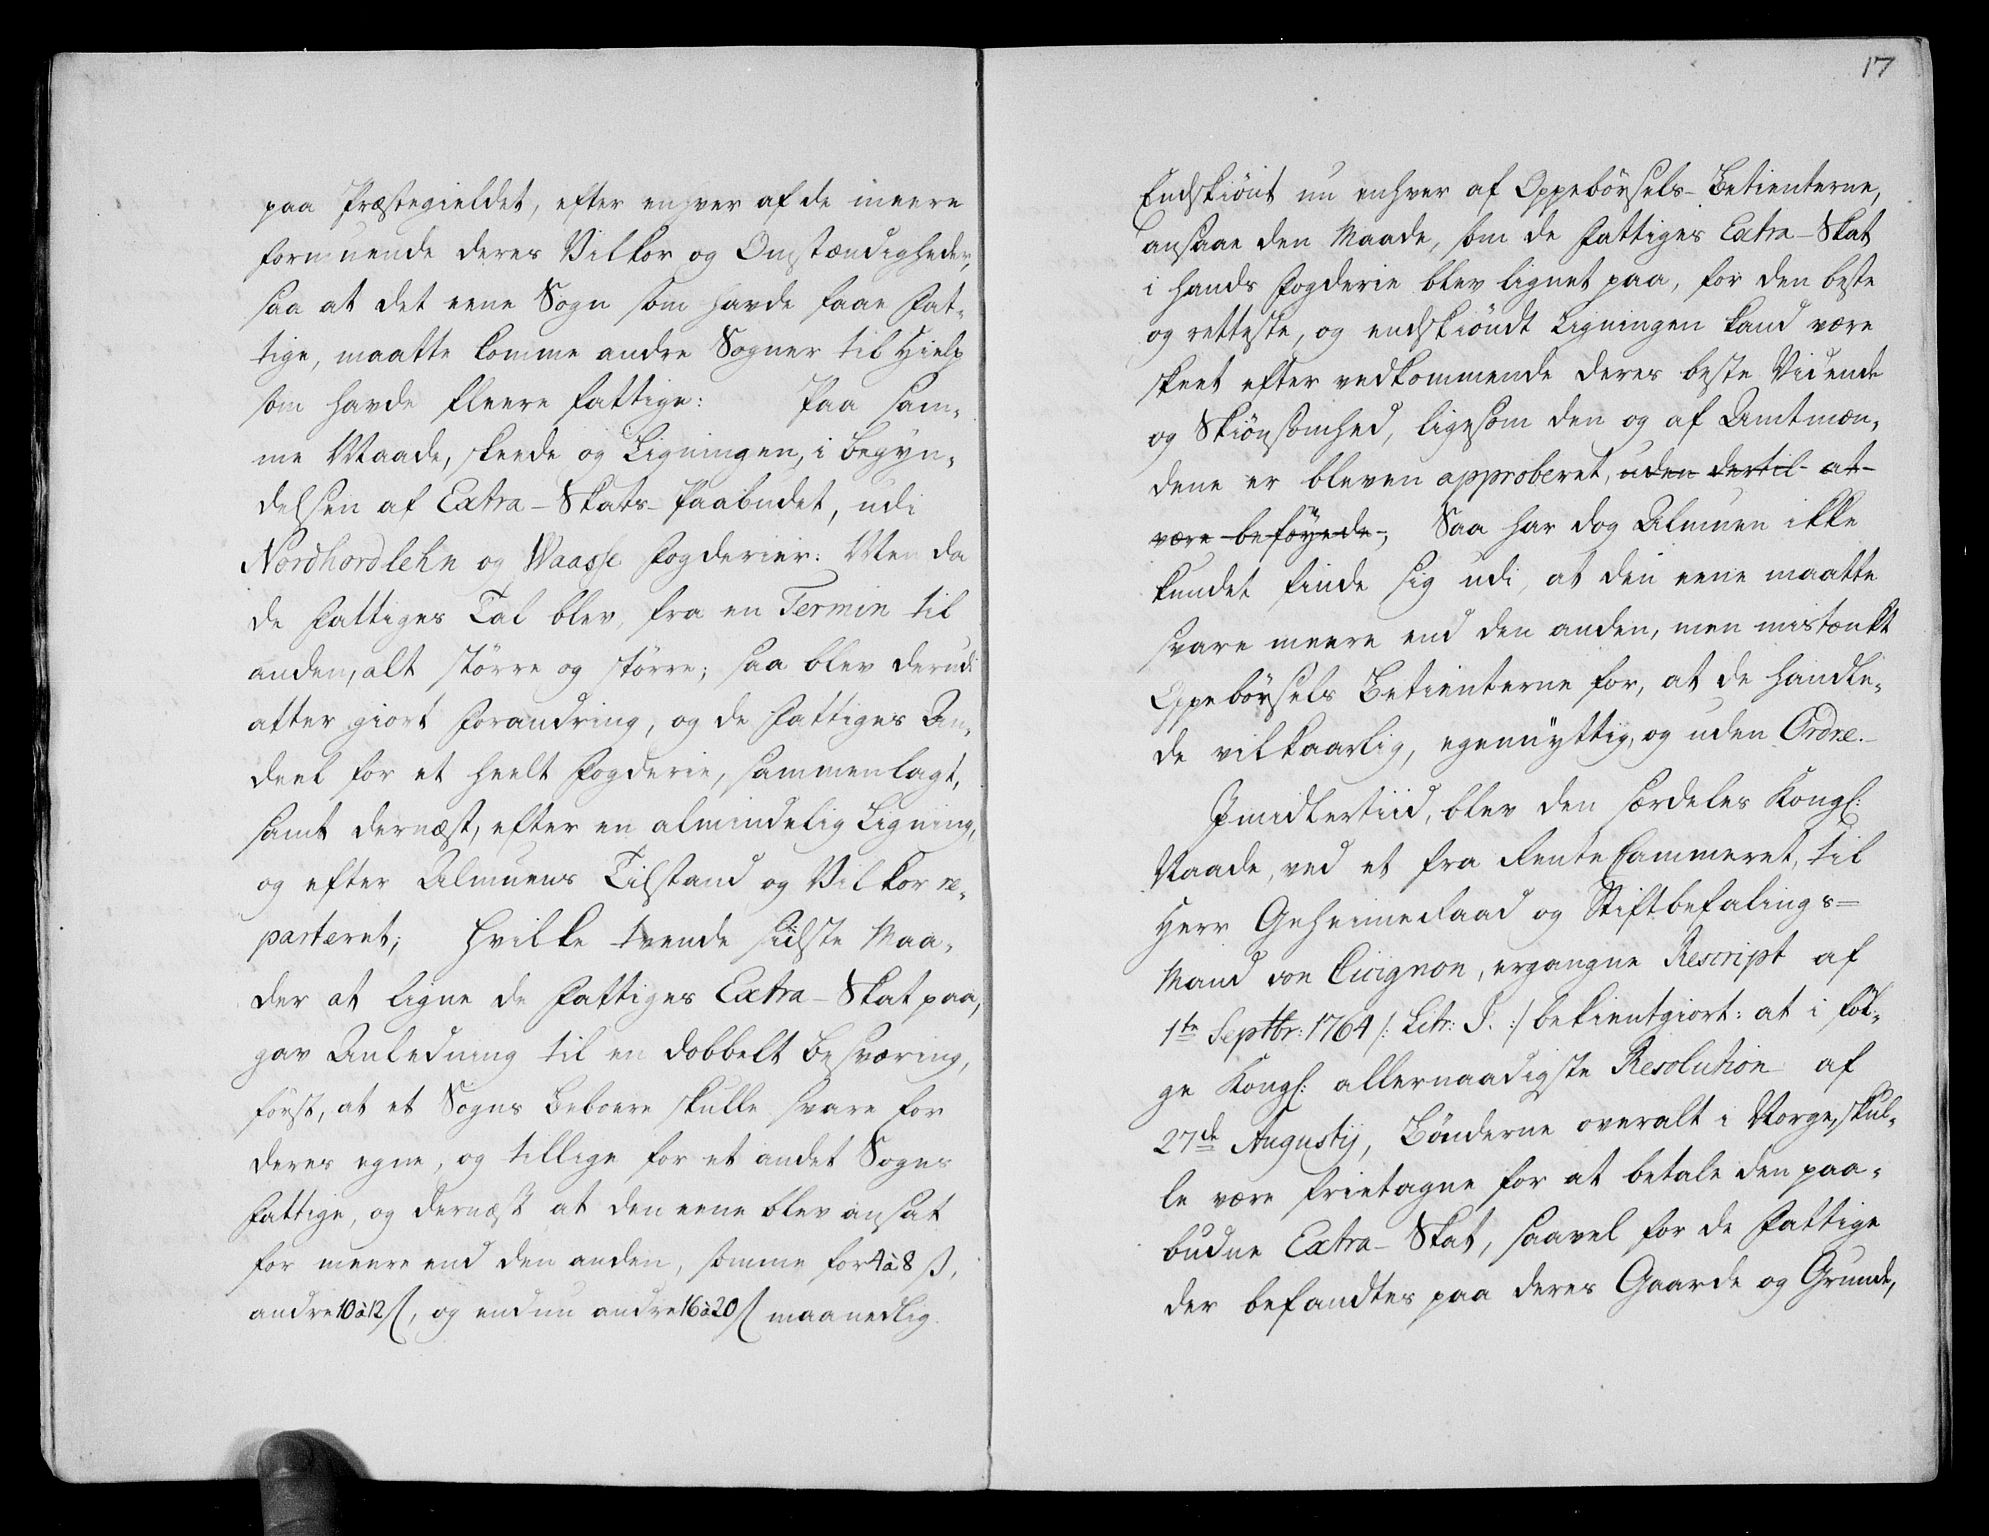 paa Præstegieldet, efter enhver af de meere
formuende deres Vilkor og Omstændigheder,
saa at det eene Sogn som havde faae Fat-
tige, maatte komme andre Sogner til Hielp
som havde fleere fattige: Paa sam-
me Maade, skeede og Ligningen, i begyn-
delsen af Extra-Skats-Paabudet, udi
Nordhordlehn og Waasse Fogderier: Men da
de Fattiges Tal blev, fra en Termin til
anden, alt større og større; saa blev derudi
atter giort Forandring, og de Fattiges An-
deel for et heelt Fogderie, sammenlagt,
samt dernæst, efter en almindelig Ligning,
og efter Almuens Tilstand og Vilkor re-
parteret; Hvilke tvende sidste Maa-
der at ligne de Fattiges Extra-Skat paa,
gav Anledning til en dobbelt Besværing,
først, at et Sogns Beboere skulle svare for
deres egne, og tillige for et andet Sogns
Fattige, og dernæst at den eene blev ansat
for meere end den anden, somme for 4 à 8 ß,
andre 10 à 12 ß, og endnu andre 16 à 20 ß maanedlig.
17
Endskiönt nu enhver af Oppebörsels-Betienterne,
ansaae den Maade, som de Fattiges Extra-Skat
i hands Fogderie blev lignet paa, for den beste
og retteste, og endskiöndt Ligningen kand være
skeet efter vedkommende deres beste Vidende
og Skiönsomhed, ligesom den og af Amtmæn-
dene er bleven approberet, uden dertil at
være beföyede, Saa har dog Almuen ikke
kundet finde sig udi, at den eene maatte
svare meere end den anden, men mistænkt
Oppebörsels Betienterne for, at de handle-
de vilkaarlig, egennyttig, og uden Ordre.
Imidlertiid, blev den særdeles Kongl:
Naade, ved et fra RenteCammeret, til
Herr GeheimeRaad og Stiftbefalings=
Mand von Cicignon, ergangne Rescript af
1te Septbr: 1764 /: Litr: I. :/ bekientgiort: at i föl-
ge Kongl: allernaadigste Resolution af
27de Augustij, Bönderne overalt i Norge, skul-
le være frietagne for at betale den paa-
budne Extra-Skat, saavel for de Fattige
der befandtes paa deres Gaarde og Grunde,